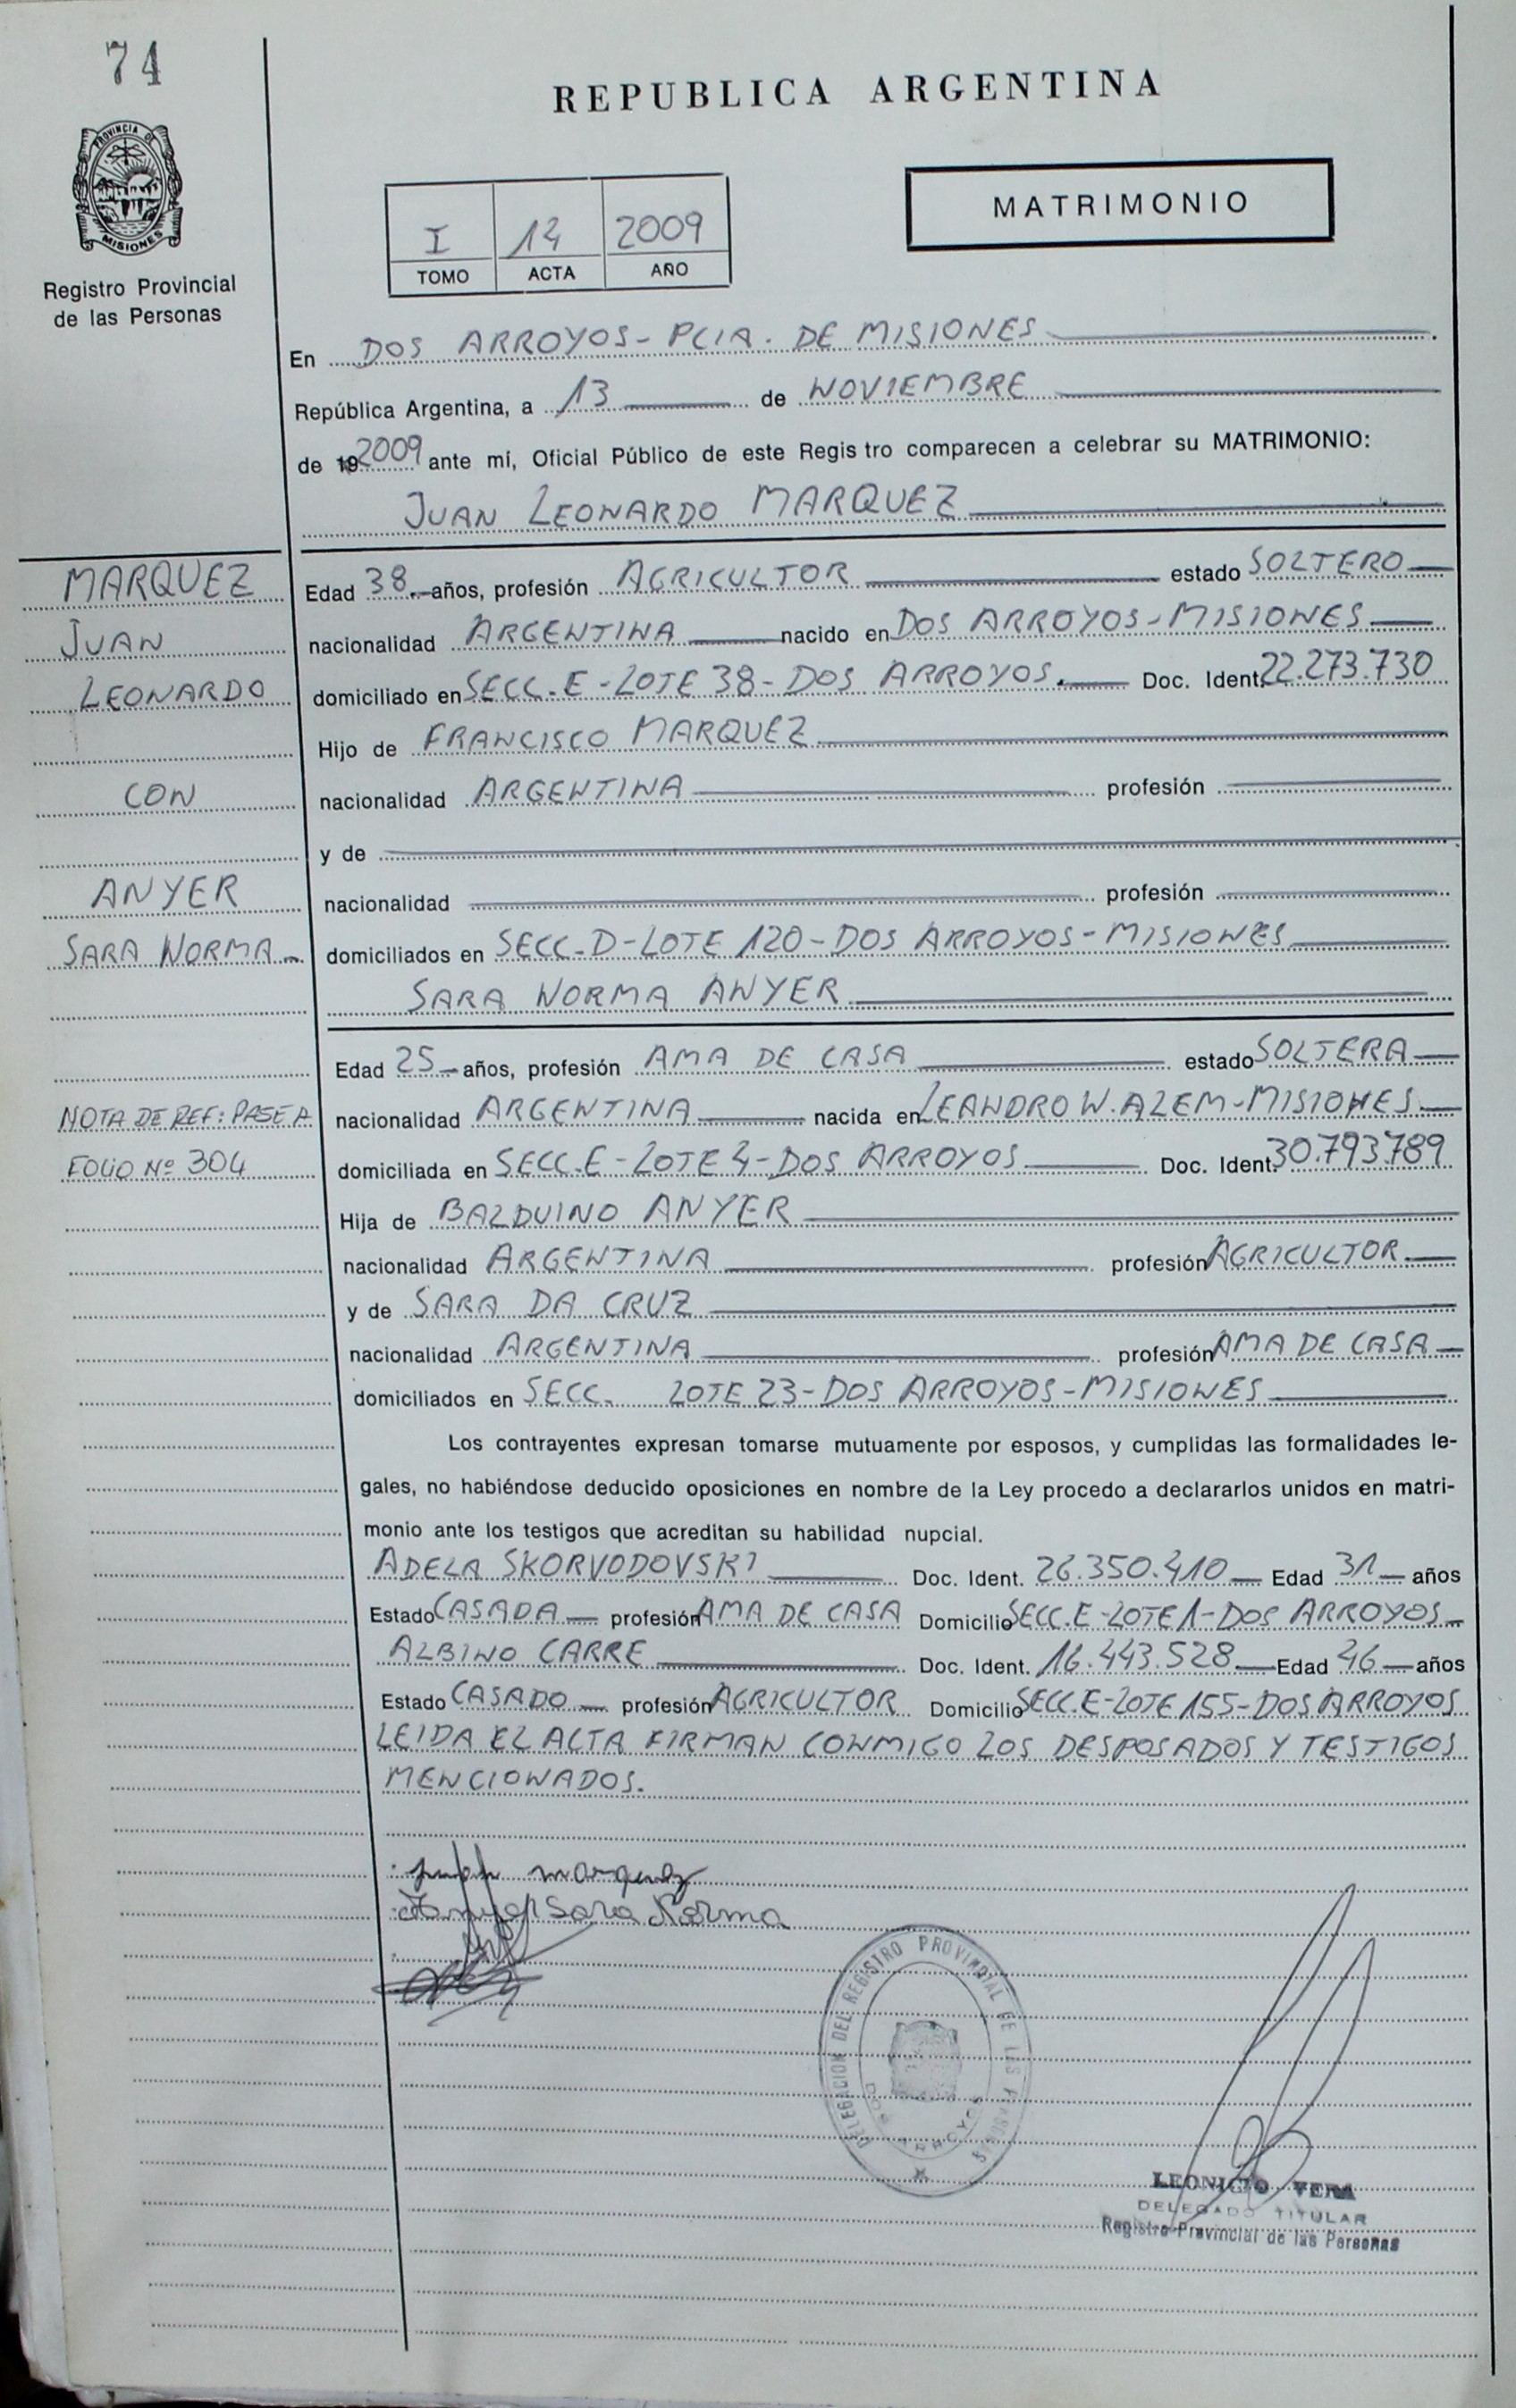 74
REPUBLICA ARGENTINA
PROVINCIA DE
MISIONES
Registro Provincial
de las Personas
MATRIMONIO
I 14 2009
TOMO ACTA AÑO
En DOS ARROYOS - PCIA. DE MISIONES
República Argentina, a 13 de NOVIEMBRE
de 19 2009 ante mí, Oficial Público de este Regis tro comparecen a celebrar su MATRIMONIO:
JUAN LEONARDO MARQUEZ
MARQUEZ
JUAN
LEONARDO
CON
ANYER
SARA NORMA
NOTA DE REF: PASE A
FOLIO Nº 304
Edad 38 años, profesión AGRICULTOR estado SOLTERO
nacionalidad ARGENTINA nacido en DOS ARROYOS - MISIONES
domiciliado en SECC. E - LOTE 38 - DOS ARROYOS. Doc. Ident. 22.273.730
Hijo de FRANCISCO MARQUEZ
nacionalidad ARGENTINA profesión
y de
nacionalidad profesión
domiciliados en SECC. D - LOTE 120 - DOS ARROYOS - MISIONES
SARA NORMA ANYER
Edad 25 años, profesión AMA DE CASA estado SOLTERA
nacionalidad ARGENTINA nacida en LEANDRO N. ALEM - MISIONES
domiciliada en SECC. E - LOTE 4 - DOS ARROYOS Doc. Ident. 30.793.789
Hija de BALDUINO ANYER
nacionalidad ARGENTINA profesión AGRICULTOR
y de SARA DA CRUZ
nacionalidad ARGENTINA profesión AMA DE CASA
domiciliados en SECC. LOTE 23 - DOS ARROYOS - MISIONES
Los contrayentes expresan tomarse mutuamente por esposos, y cumplidas las formalidades le-
gales, no habiéndose deducido oposiciones en nombre de la Ley procedo a declararlos unidos en matri-
monio ante los testigos que acreditan su habilidad nupcial.
ADELA SKORVODOVSKI Doc. Ident. 26.350.410 Edad 31 años
Estado CASADA profesión AMA DE CASA Domicilio SECC. E - LOTE 1 - DOS ARROYOS
ALBINO CARRE Doc. Ident. 16.443.528 Edad 46 años
Estado CASADO profesión AGRICULTOR Domicilio SECC. E - LOTE 155 - DOS ARROYOS
LEIDA EL ALTA FIRMAN CONMIGO LOS DESPOSADOS Y TESTIGOS
MENCIONADOS.
juan marquez
Anyer Sara Norma
DELEGACION DEL REGISTRO PROVINCIAL DE LAS PERSONAS
DOS ARROYOS
LEONICIO VERA
DELEGADO TITULAR
Registro Provincial de las Personas